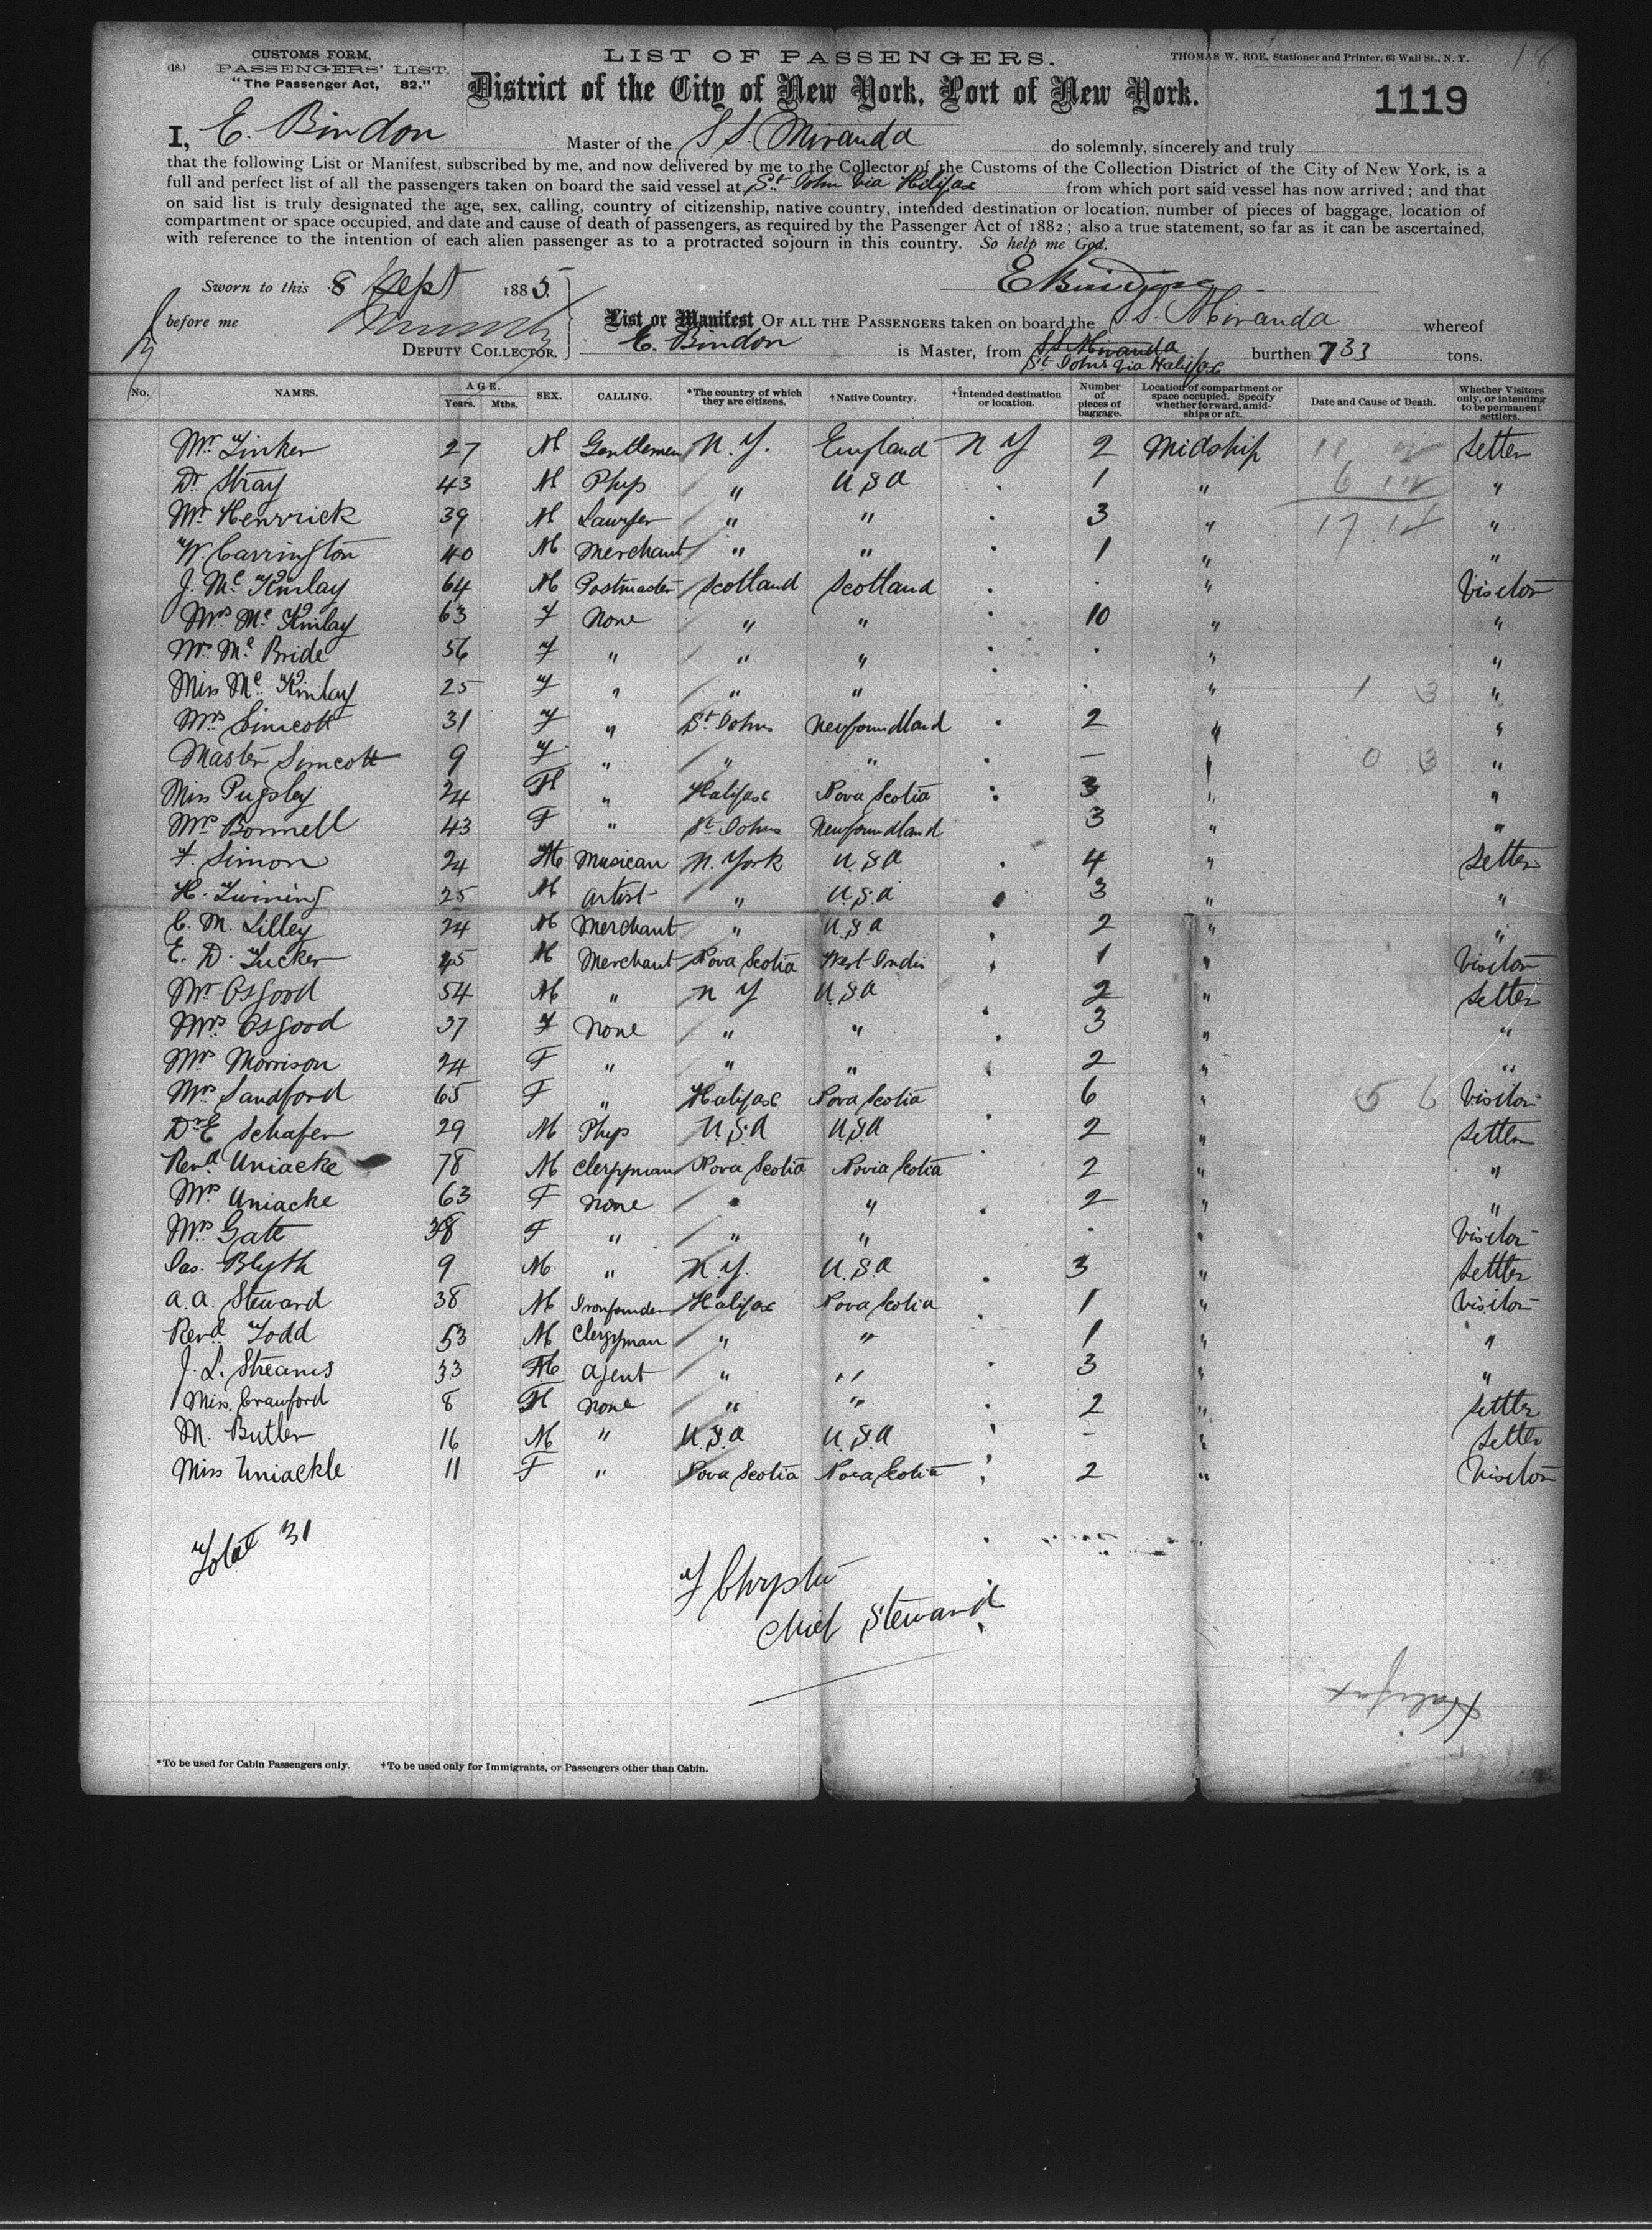 (18.) CUSTOMS FORM. LIST OF PASSENGERS. THOMAS W. ROE, Stationer and Printer, 63 Wall St., N. Y.
PASSENGERS' LIST.
"The Passenger Act, 82." District of the City of New York, Port of New York. 1119
I, E. Bindon Master of the S S. Miranda do solemnly, sincerely and truly
that the following List or Manifest, subscribed by me, and now delivered by me to the Collector of the Customs of the Collection District of the City of New York, is a
full and perfect list of all the passengers taken on board the said vessel at St John Via Hilifax from which port said vessel has now arrived; and that
on said list is truly designated the age, sex, calling, country of citizenship, native country, intended destination or location, number of pieces of baggage, location of
compartment or space occupied, and date and cause of death of passengers, as required by the Passenger Act of 1882; also a true statement, so far as it can be ascertained,
with reference to the intention of each alien passenger as to a protracted sojourn in this country. So help me God.
Sworn to this 8 Sept 1885.
before me
DEPUTY COLLECTOR.
List or Manifest OF ALL THE PASSENGERS taken on board the S. S. Miranda whereof
E. Bindon is Master, from S S Miranda St Johns Via Halifax burthen 733 tons.
No. NAMES. AGE. Years. Mths. SEX. CALLING. *The country of which they are citizens. †Native Country. †Intended destination or location. Number of pieces of baggage. Location of compartment or space occupied. Specify whether forward, amidships or aft. Date and Cause of Death. Whether Visitors only, or intending to be permanent settlers.
Mr Tinker 27 M Gentlemen N. Y. England N Y 2 Midship Setter
Dr Stray 43 M Phys " U S A . 1 " "
Mr Henrrick 39 M Lawyer " " . 3 " "
W. Carrington 40 M Merchant " " . 1 " "
J. Mc Kinlay 64 M Postmaster Scotland Scotland . . " Visetor
Mrs Mc Kinlay 63 F None " " . 10 " "
Mrs Mc Bride 56 F " " " . . " "
Miss Mc Kinlay 25 F " " " . . " "
Mrs Simcott 31 F " St Johns Newfoundland . 2 " "
Master Simcott 9 F " " " . — " "
Miss Pugsley 24 F " Halifax Nova Scotia : 3 " "
Mrs Bonnell 43 F " St Johns Newfoundland 3 " "
F. Simon 24 M Musican N. York U.S.A . 4 " Setter
H. Twining 25 M Artist " U.S.A . 3 " "
C. M. Lilley 24 M Merchant " U.S.A . 2 " "
E. D. Tucker 45 M Merchant Nova Scotia West Indie . 1 " Visitor
Mr Osgood 54 M " N Y U.S.A . 2 " Setter
Mrs Osgood 37 F None " " . 3 " "
Mrs Morrison 24 F " " " . 2 " "
Mrs Sandford 65 F " Halifax Nova Scotia 6 " Visitor
Dr E Schafer 29 M Phys U.S.A U.S.A . 2 " Settler
Revd Uniacke 78 M Clergyman Nova Scotia Novia Scotia 2 " "
Mrs Uniacke 63 F None " " . 2 " "
Mrs Gate 38 F " " " . " Visitor
Jas. Blyth 9 M " N. Y. U.S.A . 3 " Settler
A. A. Steward 38 M Ironfounder Halifax Nova Scotia . 1 " Visitor
Revd Todd 53 M Clergyman " " 1 " "
J. L. Streams 33 M Agent " " . 3 " "
Miss Crawford 8 F None " " . 2 " Settler
M. Butler 16 M " U.S.A U.S.A . - " Setter
Miss Uniackle 11 F " Nova Scotia Nova Scotia : 2 " Visetor
Total 31
F Chrystie
Chief Steward
Halifax
*To be used for Cabin Passengers only. †To be used only for Immigrants, or Passengers other than Cabin.